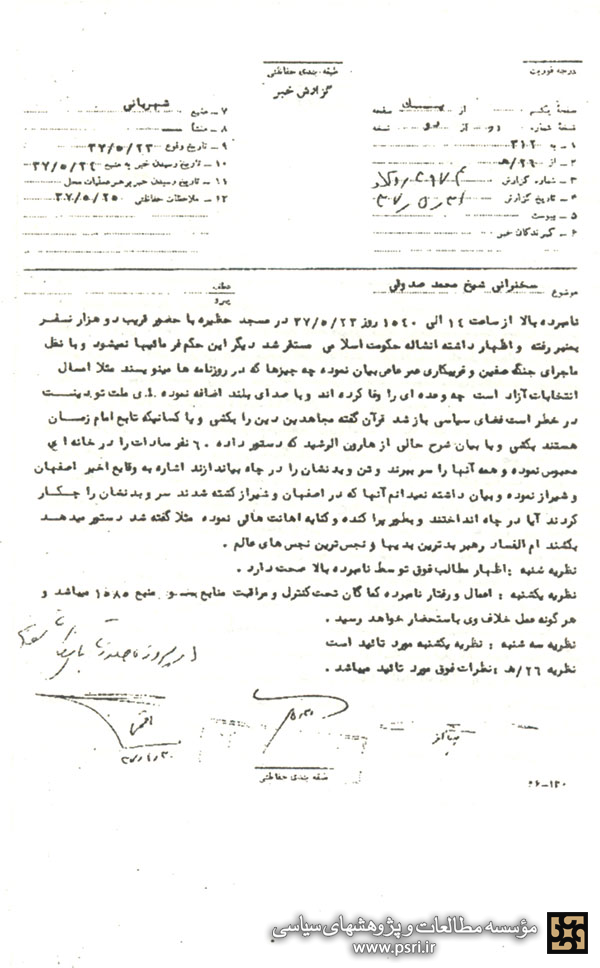 درجه فوریت
طبقه بندی حفاظتی
گزارش خبر
صفحهٔ یکم از یک صفحه
نسخهٔ شماره دو از دو نسخه
۱ ـ به ۳۱۲
۲ ـ از ۲۶/هـ
۳ ـ شماره گزارش
۴ ـ تاریخ گزارش
۵ ـ پیوست
۶ ـ گیرندگان خبر
۷ ـ منبع شهربانی
۸ ـ منشأ
۹ ـ تاریخ وقوع ۳۷/۵/۲۳
۱۰ ـ تاریخ رسیدن خبر به منبع ۳۷/۵/۲۴
۱۱ ـ تاریخ رسیدن خبر برهبر عملیات محل
۱۲ ـ ملاحظات حفاظتی ۳۷/۵/۲۵
موضوع سخنرانی شیخ محمد صدوقی
عطف
پیرو
نامبرده بالا از ساعت ۱۴ الی ۱۵۴۰ روز ۳۷/۵/۲۳ در مسجد حظیره با حضور قریب دو هزار نفر
بمنبر رفته و اظهار داشته انشاله حکومت اسلامی مستقر شد دیگر این حکم فرمائیها نمیشود و با نقل
ماجرای جنگ صفین و فریبکاری عمرعاص بیان نموده چه چیزها که در روزنامه ها مینویسند مثلا امسال
انتخابات آزاد است چه وعده ای را وفا کرده اند و با صدای بلند اضافه نموده ای ملت تو بدینست
در خطر است فضای سیاسی باز شد قرآن گفته مجاهدین دین را بکشی و یا کسانیکه تابع امام زمان
هستند بکشی و با بیان شرح حالی از هارون الرشید که دستور داده ۶۰ نفر سادات را در خانه ای
محبوس نموده و همه آنها را سر ببرند و تن و بدنشان را در چاه بیاندازند اشاره به وقایع اخیر اصفهان
و شیراز نموده و بیان داشته نمیدانم آنها که در اصفهان و شیراز کشته شدند سر و بدنشان را چکار
کردند آیا در چاه انداختند و بطور پراکنده و کنایه اهانت هائی نموده مثلا گفته شد دستور میدهد
بکشند ام الفساد رهبر بدترین بدیها و نجس ترین نجس های عالم .
نظریه شنبه : اظهار مطالب فوق توسط نامبرده بالا صحت دارد .
نظریه یکشنبه : اعمال و رفتار نامبرده کماکان تحت کنترل و مراقبت منابع منبع ۱۵۸۵ میباشد و
هرگونه عمل خلاف وی باستحضار خواهد رسید .
نظریه سه شنبه : نظریه یکشنبه مورد تائید است
نظریه ۲۶/هـ : نظرات فوق مورد تائید میباشد .
طبقه بندی حفاظتی
مؤسسه مطالعات و پژوهشهای سیاسی
www.psri.ir